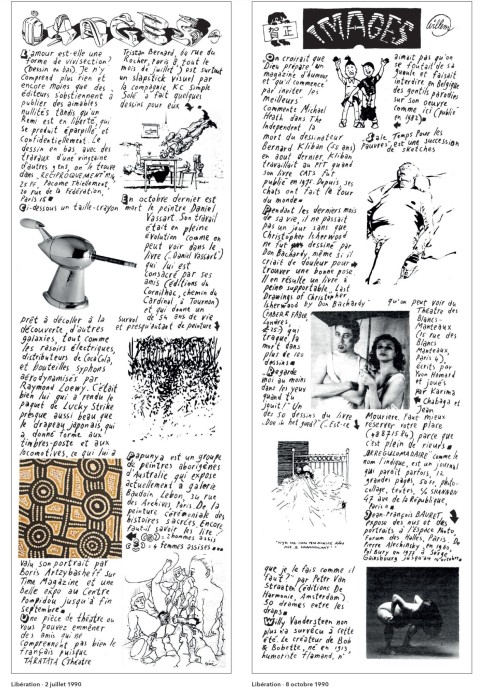 IMAGES.
L'amour est-elle une
forme de vivisection?
(Dessin au bas). Je n'y
comprend plus rien et
encore moins que des
éditeurs s'obstinent à
publier des aimables
nullités tandis qu'un
Remi est en liberté, qui
se produit éparpillé et
confidentiellement. Le
dessin en bas, avec des
travaux d'une vingtaine
d'autres gens, on le trouve
dans
25 FF, Pacôme Thiellement,
20 rue de la Fédération,
Paris 15
Ci-dessous un taille-crayon
Tristan Bernard, 60 rue du
Rocher, Paris 8, tout le
mois de juillet) est surtout
un slapstick visuel par
la compagnie
a fait quelques
dessins pour eux
En octobre dernier est
mort le peintre Daniel
Vassart. Son travail
était en pleine
évolution comme on
peut voir dans le
livre (Daniel Vassart)
qui lui est
consacré par ses
amis (éditions du
Cornilhac, chemin du
Cardinal à Tournon)
et qui donne un
survol de 54 ans de vie
et presqu'autant de peinture
prêt à décoller à la
découverte d'autres
galaxies, tout comme
les rasoirs électriques,
distributeurs de CocaCola,
et bouteilles syphons
aérodynamisés par
Raymond Loewy. C'était
bien lui qui a rendu le
paquet de Lucky Strike
presque aussi beau que
le drapeau japonais, qui
a donné forme aux
timbres-poste et aux
locomotives, ce qui lui a
Papunya est un groupe
de peintres aborigènes
d'Australie qui expose
actuellement à galerie
Baudoin Lebon, 34 rue
des Archives, Paris. De la
peinture cérémoniale, des
histoires sacrées. Encore
faut-il savoir les lire
= 2 hommes assis
= 4 femmes assises
valu son portrait par
Boris Artzybasheff sur
Time Magazine et une
belle expo au Centre
Pompidou jusqu'à fin
septembre.
Une pièce de théâtre où
vous pouvez emmener
des amis qui ne
comprennent pas bien le
français puisque
TARATATA (Théatre
Libération - 2 juillet 1990
賀正
IMAGES
Willem
On croirait que
Dieu prépare un
magazine d'humour
et qu'il commence
par inviter les
meilleurs.
Comments Michael
Heath dans The
Independent la
mort du dessinateur
Bernard Kliban (55 ans)
en aout dernier. Kliban
travaillait au PIT quand
son livre CATS fut
publié en 1975. Depuis, ses
chats ont fait le tour
du monde.
Pendant les derniers mois
de sa vie, il ne passait
pas un jour sans que
Christopher Isherwood
ne fut dessiné par
Don Bachardy, même si il
criait de douleur pour
trouver une bonne pose.
Il en résulte un livre à
peine supportable, Last
Drawings of Christopher
Isherwood by Don Bachardy
(Faber & Faber,
Londres,
qui
traque la
mort dans
plus de 100
dessins.
Regarde
moi au moins
dans les yeux
quand tu
jouit!" Un
des 50 dessins du livre
"Doe ik het goed?" (C.-est-ce
que je le fais comme il
faut?" par Peter Van
Straaten (éditions De
Harmonie, Amsterdam)
50 drames entre les
draps.
Willy Vandersteen non
plus n'a survécu à cette
été. Le créateur de Bob
& Bobette, né en 1913,
humoriste flamand, n'
aimait pas qu'on
se foutait de sa
gueule et faisait
interdire en Belgique
des gentils parodies
sur son oeuvre
comme ici (publié
en 1982)
Sale Temps Pour les
Pauvres, est une succession
de sketchs
qu'on peut voir du
Théatre des
Blancs-
Manteaux
(15 rue des
Blancs
Manteaux,
Paris 4),
écrits par
Yvon Homard
et joués
par Karima
Chabaga et
Jean
Mouriere. Faut mieux
réserver votre place
parce que
c'est plein de rieurs.
comme le
nom l'indique, est un journal
qui parait parfois, 12
grandes pages, 50 FF, photo-
collage, textes, c/o SHUNADO
47 ave de la République,
Paris
Jean-François BAURET,
expose des nus et des
portraits à l'Espace Photo,
Forum des Halles, Paris. De
Pierre Alechinsky en 1960,
Pol Bury en 1975 à Serge
Gainsbourg
Libération - 8 octobre 1990